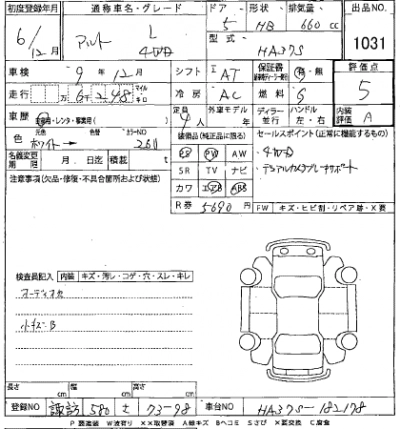 初度登録年月 通称車名・グレード ドア・形状・排気量 出品NO.
6/12月 アルト L 4WD 5 HB 660 cc
型式 HA37S 1031
車検 9年12月 シフト I AT 保証書 有・無 評価点
走行 万 6千248 マイル キロ 冷房 AC 燃料 G 5
車歴 自家用・レンタ・事業用 定員 4人 外車モデル ディーラー 並行 ハンドル 左・右 内装評価 A
色 元色 ホワイト→ 色替 カラーNO 26U
装備品(純正品に限る) セールスポイント(正常に機能するもの)
名義変更期限 月 日迄 積載 t PS PW AW ・4WD
注意事項(欠品・修復・不具合箇所および状態) SR TV ナビ ・デュアルカメラブレーキサポート
カワ エアB ABS
R券 5690円 FW キズ・ヒビ割・リペア跡・X要
検査員記入 内装 キズ・汚レ・コゲ・穴・スレ・キレ
オーディオカ
小キズ・B
長さ cm 幅 cm 高さ cm
登録NO 諏訪 580 さ 73-98 車台NO HA37S-182178
P 要塗装 W波有り XX取替済 A線キズ Bヘコミ Sさび X要交換 C腐食